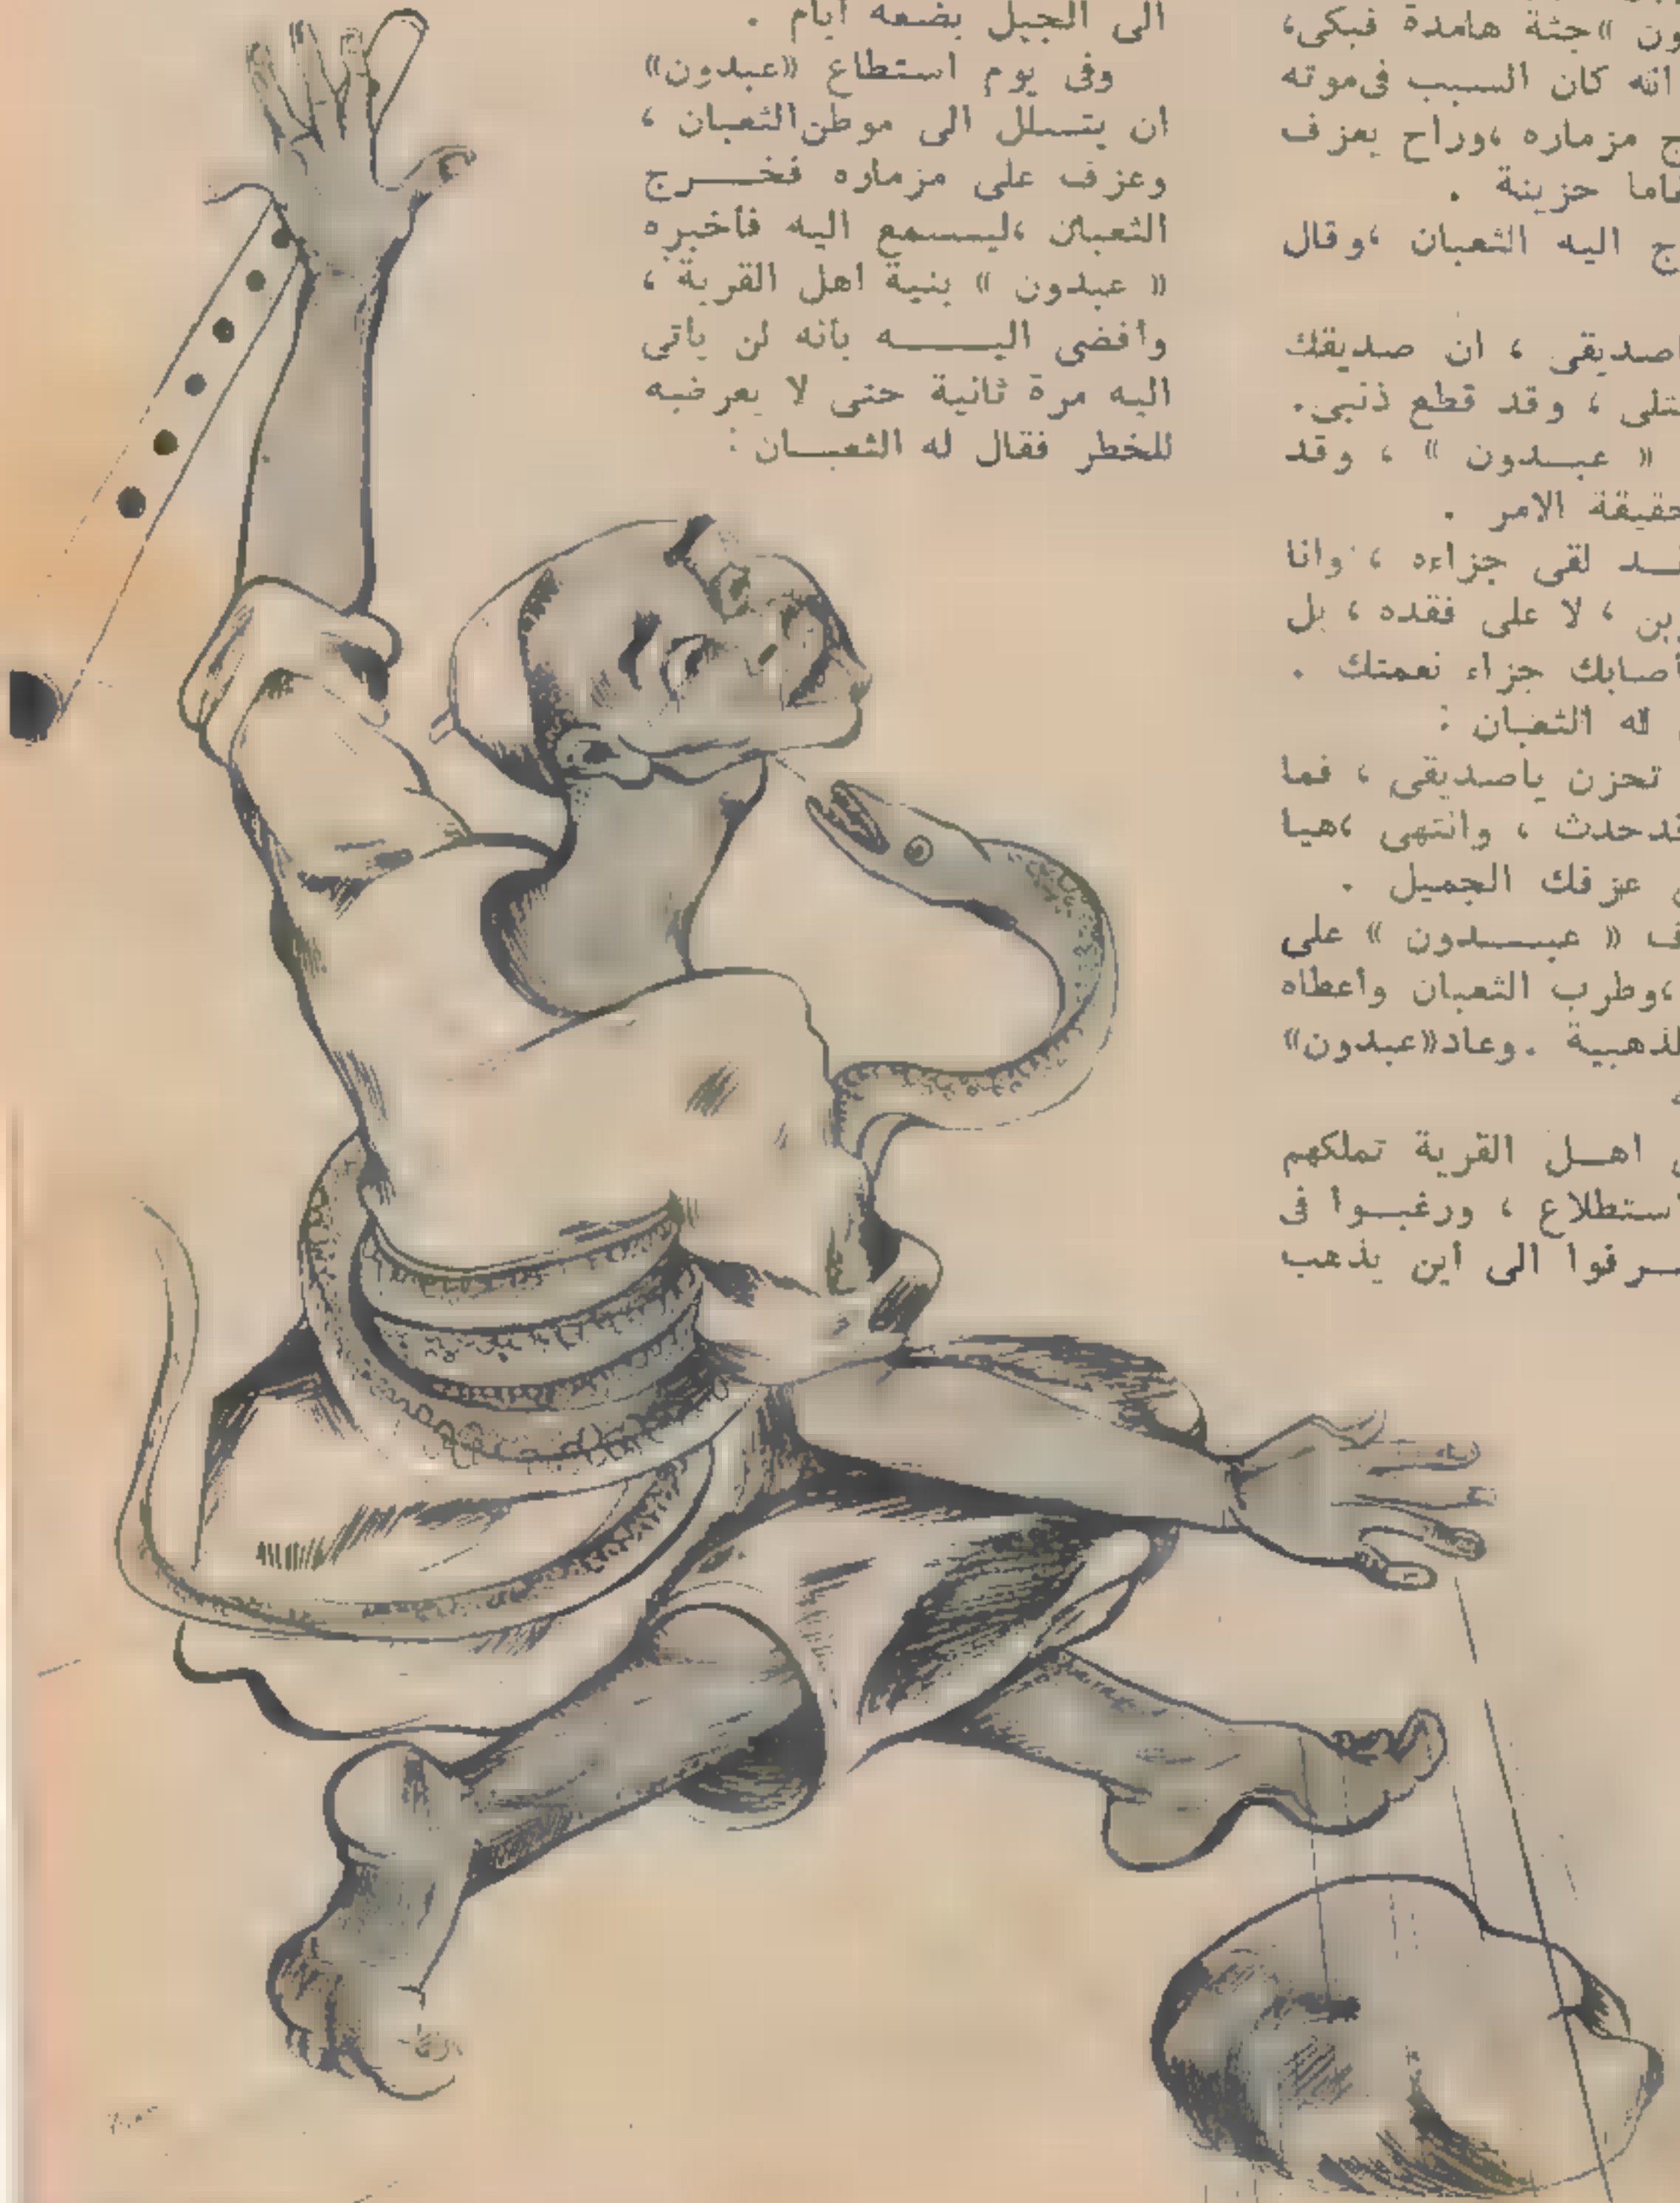 ون » جثة هامدة فبكى،
انه كان السبب فى موته
ج مزماره ،وراح يعزف
ـاما حزينة .
ج اليه الثعبان ،وقال
ـاصديقى ، ان صديقك
ـتلى ، وقد قطع ذنبى.
« عبـدون » ، وقد
حقيقة الامر .
ـد لقى جزاءه ، وانا
ـين ، لا على فقده ، بل
أصابك جزاء نعمتك .
له الثعبان :
تحزن ياصديقى ، فما
قدحدث ، وانتهى ،هيا
عزفك الجميل .
ف « عبـــدون » على
،وطرب الثعبان وأعطاه
لذهبية .وعاد«عبدون»
اهـل القرية تملكهم
استطلاع ، ورغبـوا فى
ـرفوا الى أين يذهب
الى الجبل بضعه ايام .
وفى يوم استطاع «عبدون»
ان يتسلل الى موطن الثعبان ،
وعزف على مزماره فخـــرج
الثعبان ،ليسمع اليه فأخبره
« عبدون » بنية اهل القرية ،
وأفضى اليــــه بأنه لن يأتى
اليه مرة ثانية حتى لا يعرضه
للخطر فقال له الثعبــان :